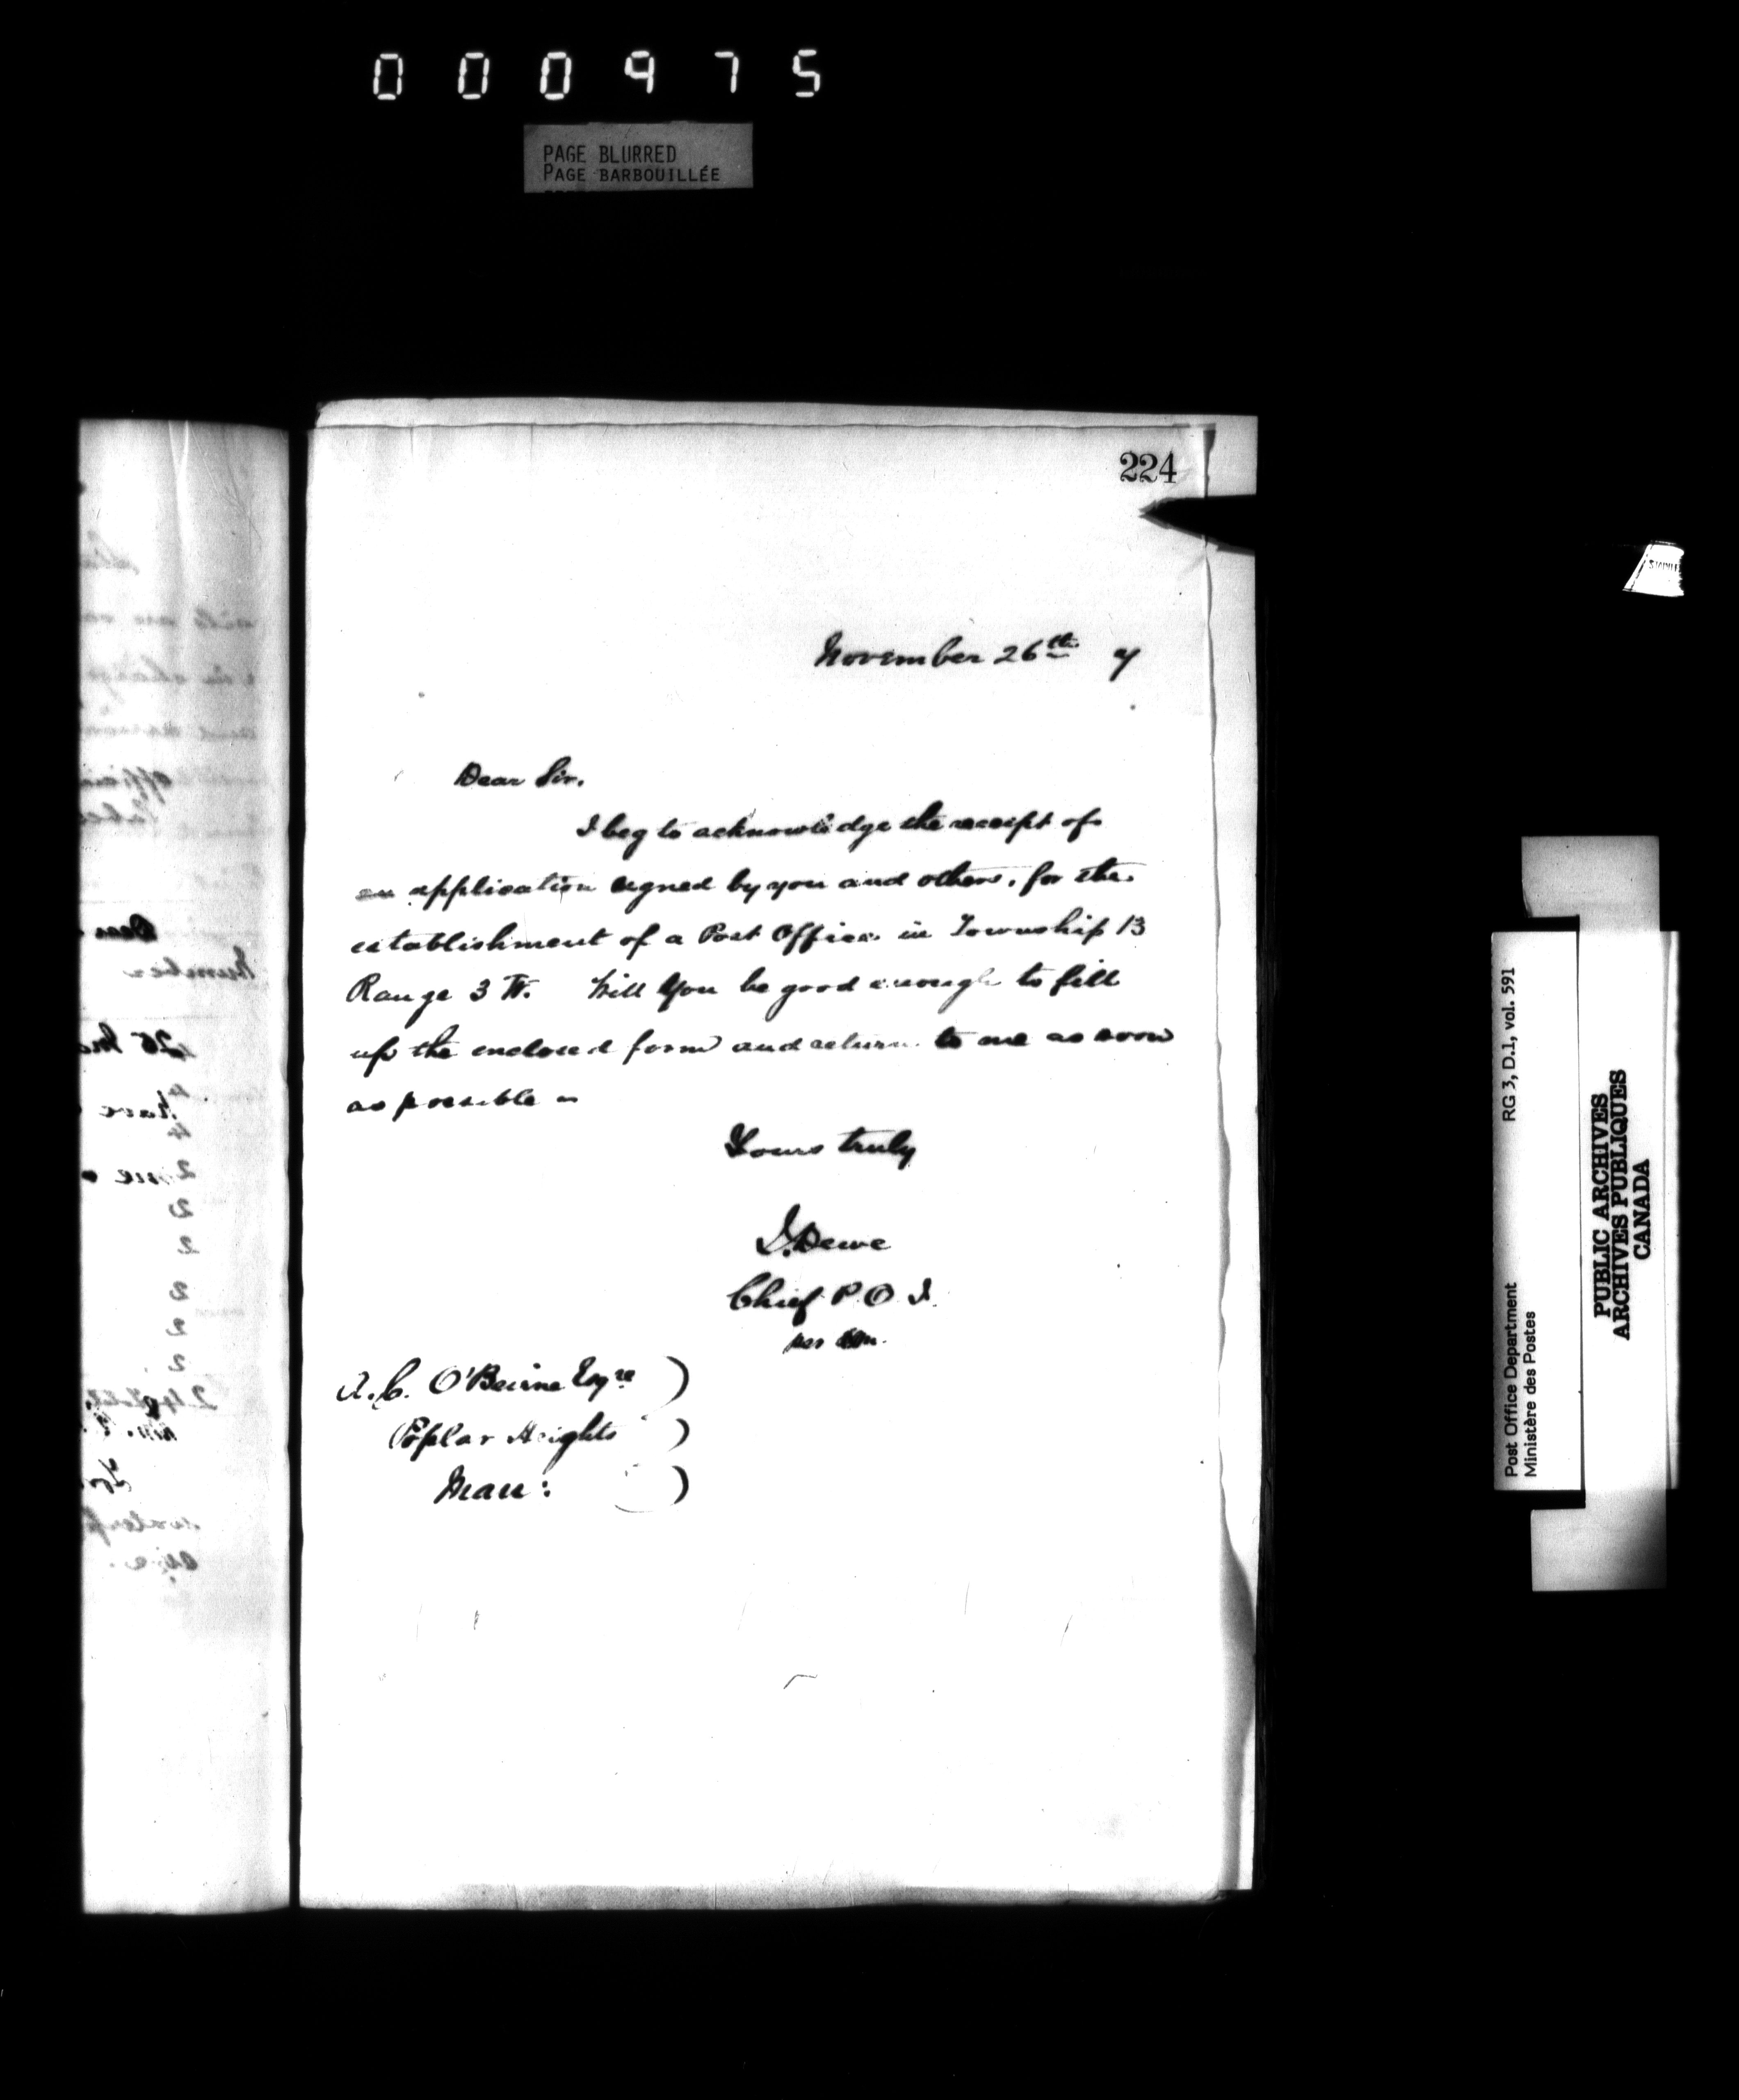 000975
PAGE BLURRED
PAGE BARBOUILLÉE
224
November 26th 7
Dear Sir.
I beg to acknowledge the receipt of
an application signed by you and others, for the
establishment of a Post Office in Township 13
Range 3 W. Will you be good enough to fill
up the enclosed form and return to me as soon
as possible
Yours truly
J. Dewe
Chief P.O.I.
per
A.C. O'Beirne Esqre )
Poplar Heights )
Man: )
RG 3, D.1, vol. 591
Post Office Department
Ministère des Postes
PUBLIC ARCHIVES
ARCHIVES PUBLIQUES
CANADA